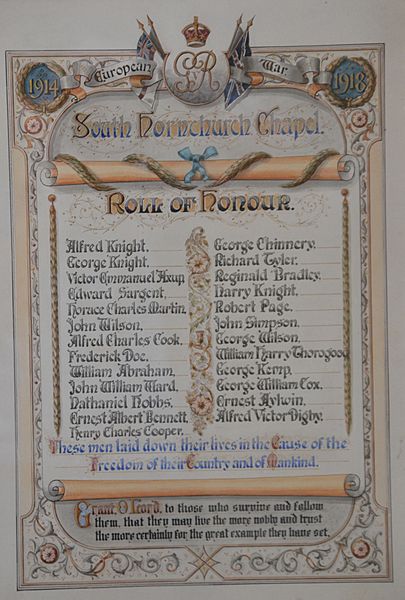 1914
European
GR
War
1918
South Hornchurch Chapel.
Roll of Honour.
Alfred Knight.
George Knight.
Victor Emmanuel Axup.
Edward Sargent.
Horace Charles Martin.
John Wilson.
Alfred Charles Cook.
Frederick Doe.
William Abraham.
John William Ward.
Nathaniel Nobbs.
Ernest Albert Bennett.
Henry Charles Cooper.
George Chinnery.
Richard Tyler.
Reginald Bradley.
Harry Knight.
Robert Page.
John Simpson.
George Wilson.
William Harry Thorogood
George Kemp.
George William Cox.
Ernest Aylwin.
Alfred Victor Digby.
These men laid down their lives in the Cause of the
Freedom of their Country and of Mankind.
Grant, O Lord, to those who survive and follow
them, that they may live the more nobly and trust
the more certainly for the great example they have set.